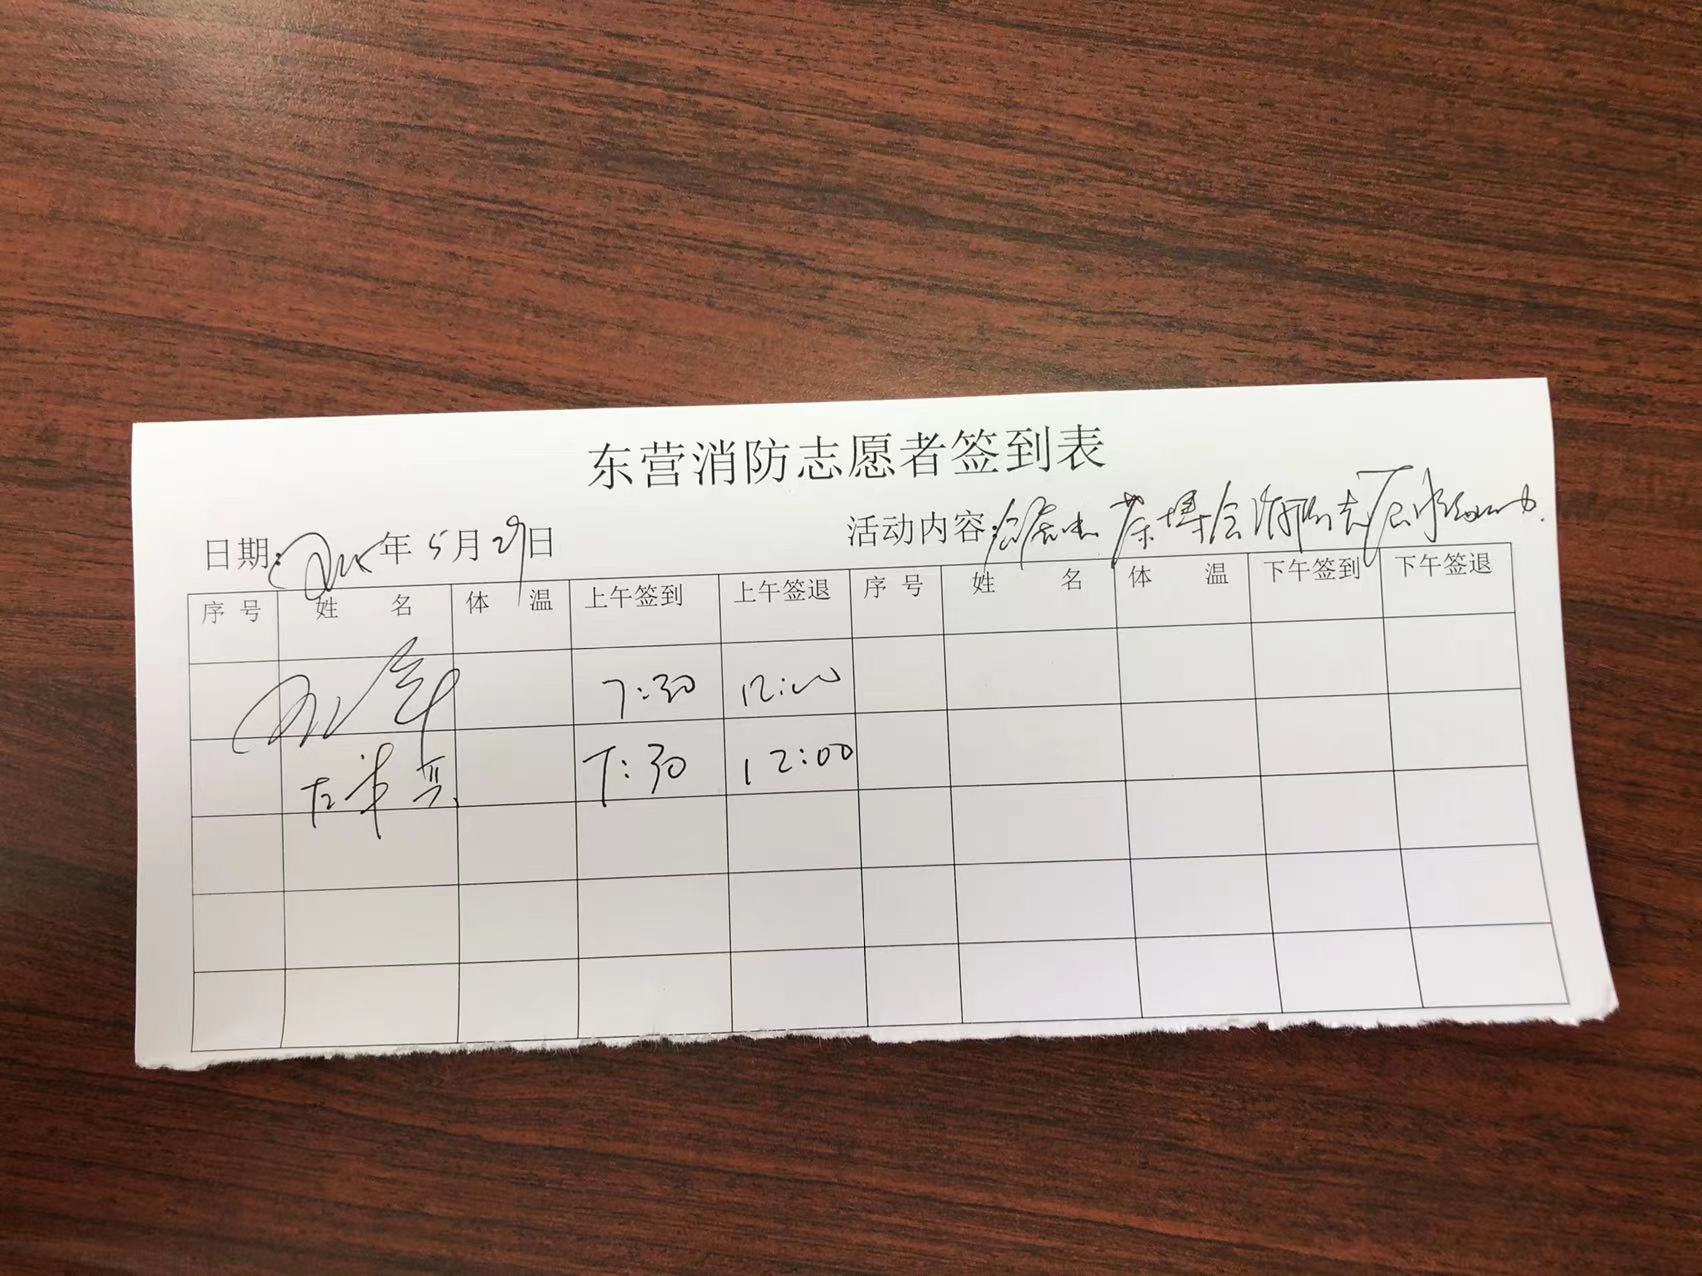 东营消防志愿者签到表
日期: 年5月29日 活动内容: 茶博会消防志愿
序号 姓名 体温 上午签到 上午签退 序号 姓名 体温 下午签到 下午签退
7:30 12:00
7:30 12:00